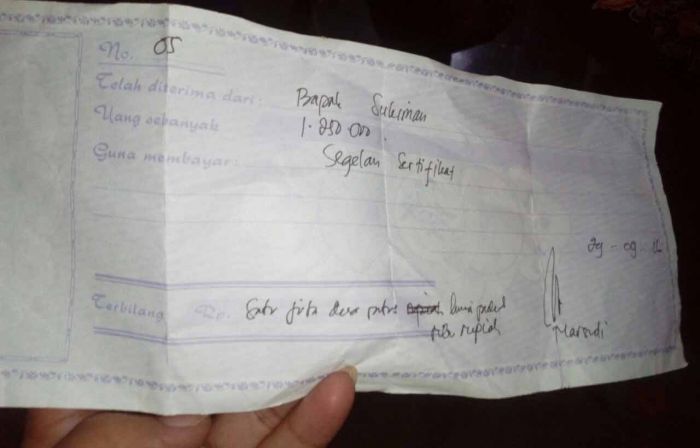 No. 05
Telah diterima dari : Bapak Sukiman
Uang sebanyak 1.250.000.
Guna membayar : Segelan Sertifikat
29 - 09 - 16
Terbilang Rp. Satu juta dua ratus lima puluh
ribu rupiah
Marsudi